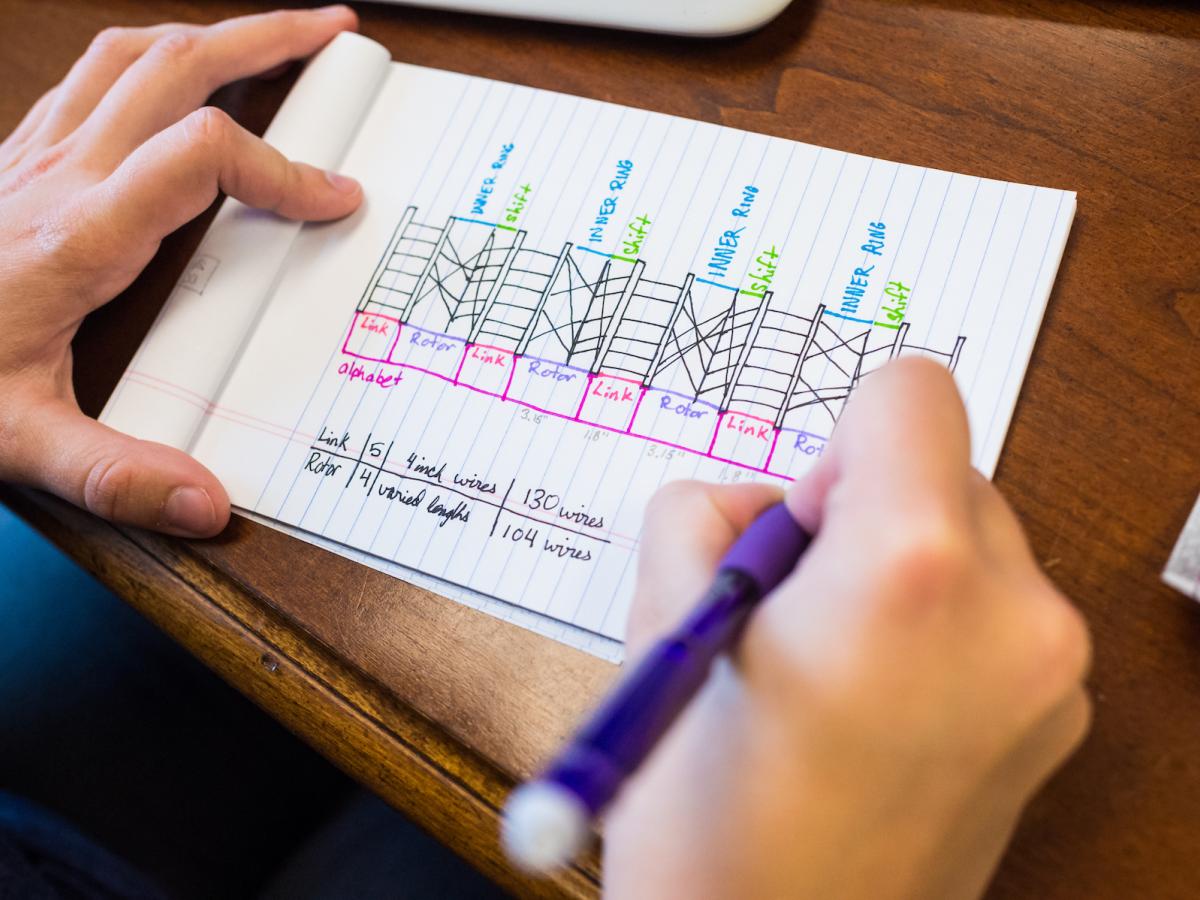 INNER RING shift INNER RING shift INNER RING shift INNER RING shift
Link Rotor Link Rotor Link Rotor Link Rot
alphabet
3.15" 1.8" 3.15" 1.8"
Link 5 4 inch wires 130 wires
Rotor 4 varied lenghs 104 wires